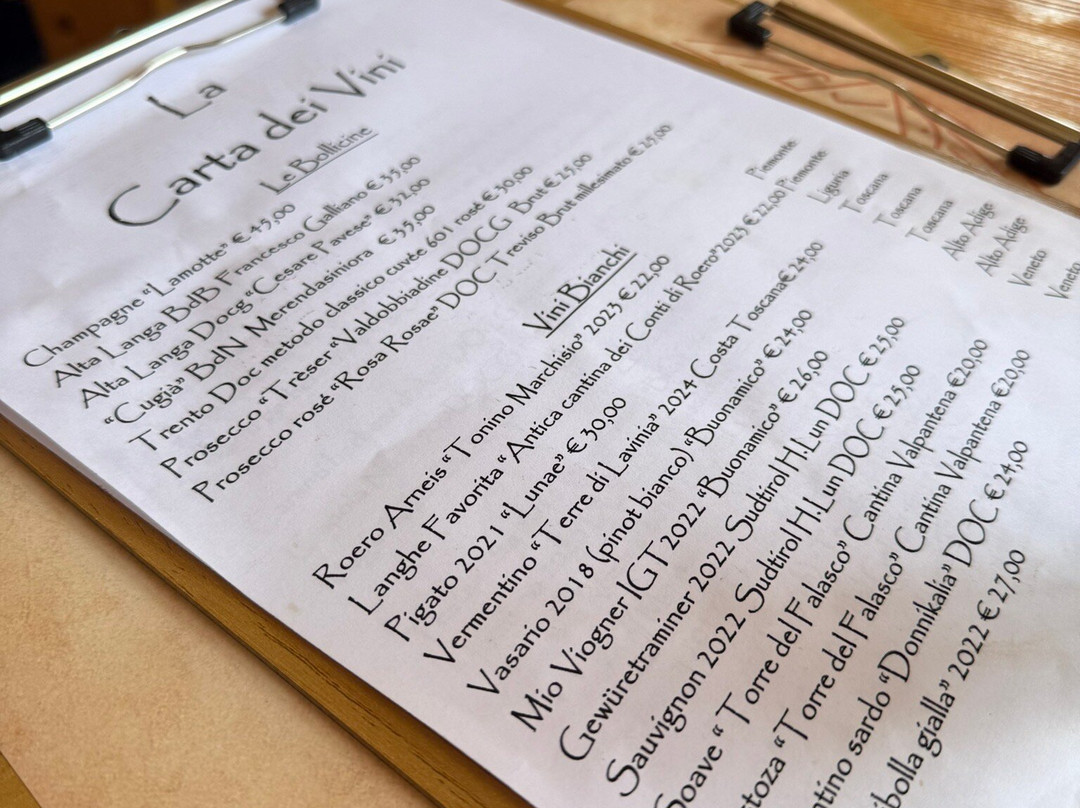 La
Carta dei Vini
Le Bollicine
Champagne "Lamotte" € 45,00
Alta Langa BdB Francesco Galliano € 35,00
Alta Langa Docg "Cesare Pavese" € 32,00
"Cugià" BdN Merendasiniora € 35,00
Trento Doc metodo classico cuvée 601 rosé € 30,00
Prosecco "Trèser "Valdobbiadine DOCG Brut € 25,00
Prosecco rosé "Rosa Rosae" DOC Treviso Brut millesimato € 25,00
Vini Bianchi
Roero Arneis "Tonino Marchisio" 2023 € 22,00 Piemonte
Langhe Favorita "Antica cantina dei Conti di Roero" 2023 € 22,00 Piemonte
Pigato 2021 "Lunae" € 30,00 Liguria
Vermentino "Terre di Lavinia" 2024 Costa Toscana € 24,00 Toscana
Vasario 2018 (pinot bianco) "Buonamico" € 24,00 Toscana
Mio Viogner IGT 2022 "Buonamico" € 26,00 Toscana
Gewüretraminer 2022 Sudtirol H.Lun DOC € 25,00 Alto Adige
Sauvignon 2022 Sudtirol H.Lun DOC € 25,00 Alto Adige
Soave "Torre del Falasco" Cantina Valpantena €20,00 Veneto
toza "Torre del Falasco" Cantina Valpantena €20,00 Veneto
tino sardo "Donnikalia" DOC € 24,00
bolla gialla" 2022 € 27,00